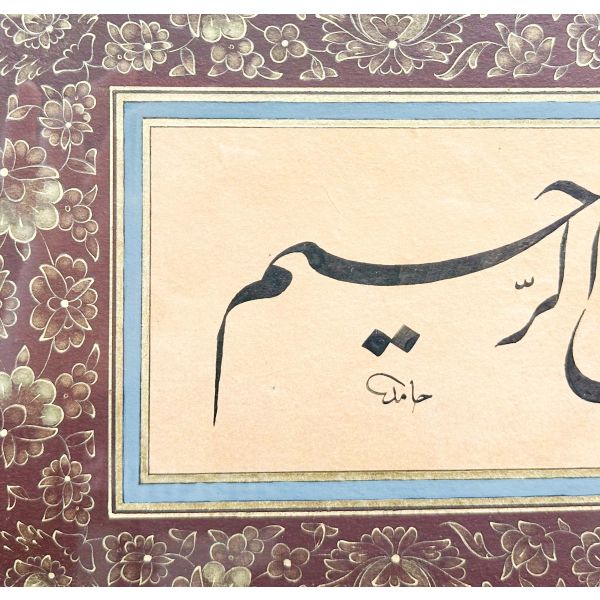 الرّحيم
حامد